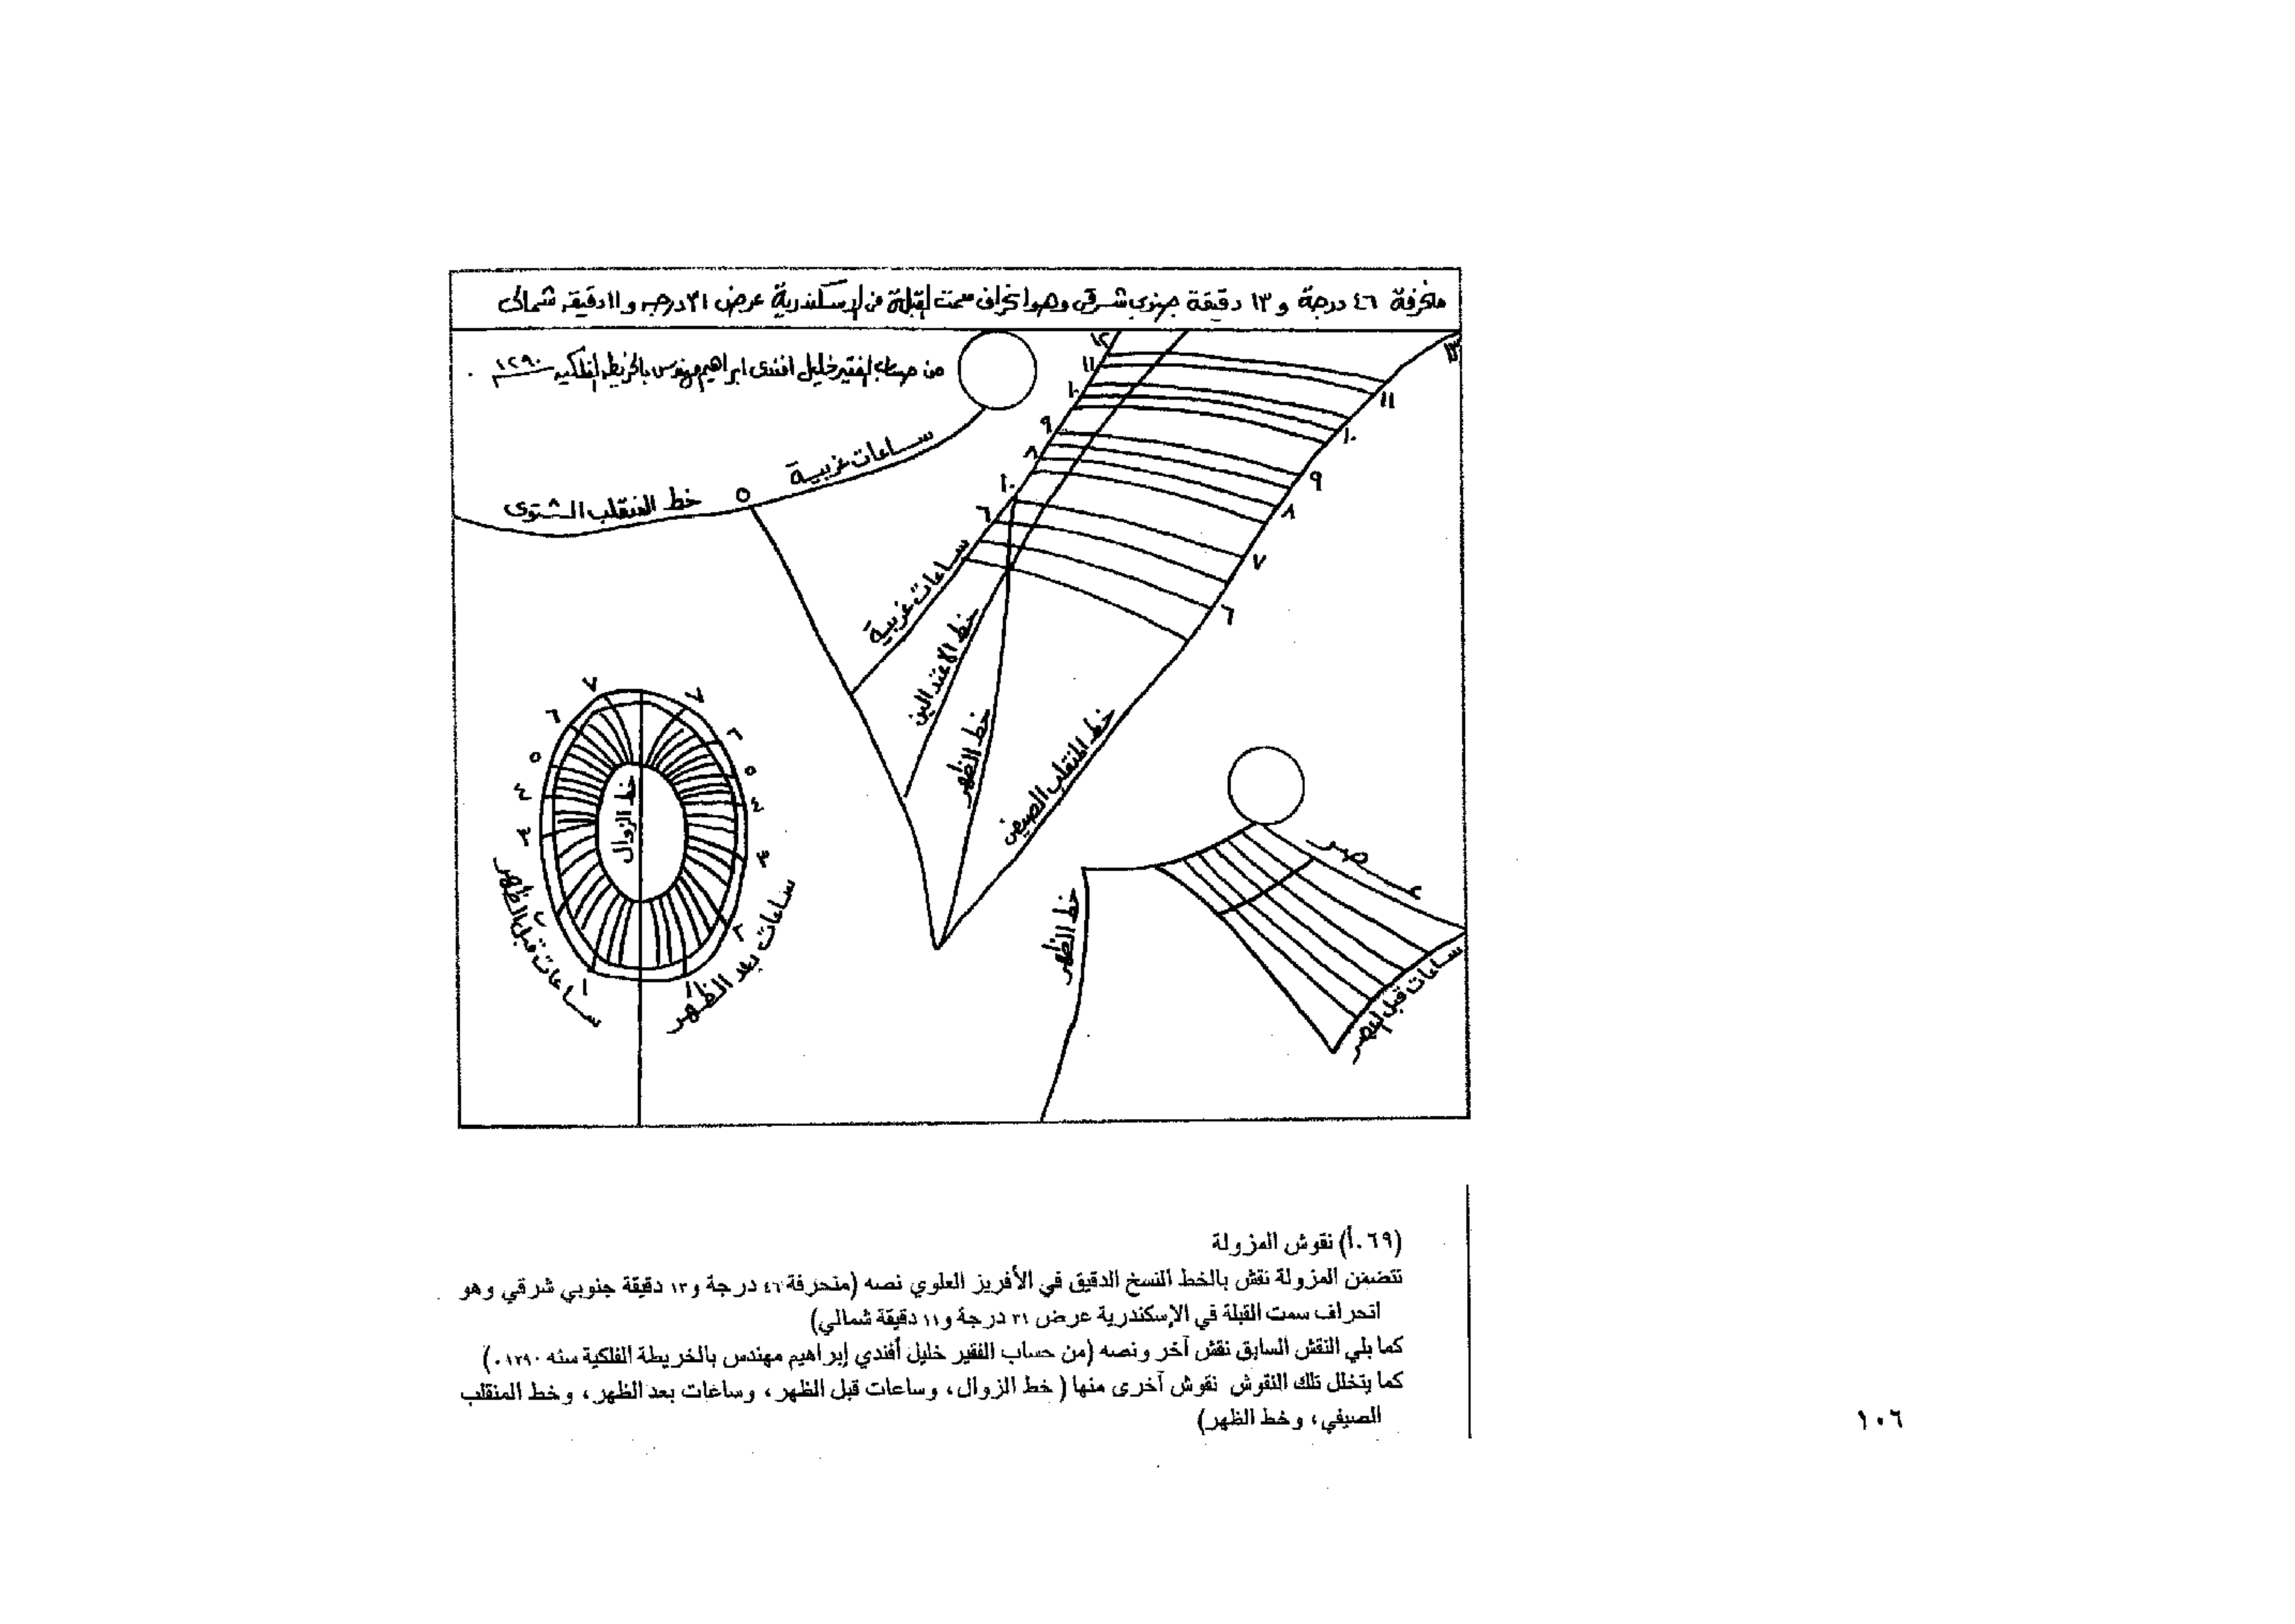 منحرفة ٤٦ درجة و ١٣ دقيقة جنوبي شرقي وهو انحراف سمت القبلة في الإسكندرية عرض ٣١ درجه و ١١ دقيقه شمالى
من حساب الفقير خليل افندى ابراهيم مهندس بالخريطه الفلكيه ١٢٩٠
ساعات غربية
خط المنقلب الشتوى
٥
١٢
١١
١٠
٩
٨
١٠
٦
١١
١٠
٩
٨
٧
٦
ساعات غربية
خط الاعتدالين
خط الظهر
خط المنقلب الصيفي
٧
٦
٥
٤
٣
٢
١
٧
٦
٥
٤
٣
٢
١
خط الزوال
ساعات قبل الظهر
ساعات بعد الظهر
خط الظهر
ساعات قبل العصر
(٦٩.أ) نقوش المزولة
تتضمن المزولة نقش بالخط النسخ الدقيق في الأفريز العلوي نصه (منحرفة ٤٦ درجة و١٣ دقيقة جنوبي شرقي وهو
انحراف سمت القبلة في الإسكندرية عرض ٣١ درجة و١١ دقيقة شمالي)
كما يلي النقش السابق نقش آخر ونصه (من حساب الفقير خليل أفندي إبراهيم مهندس بالخريطة الفلكية سنه ١٢٩٠.)
كما يتخلل تلك النقوش نقوش آخرى منها ( خط الزوال، وساعات قبل الظهر، وساعات بعد الظهر، وخط المنقلب
الصيفي، وخط الظهر)
١٠٦